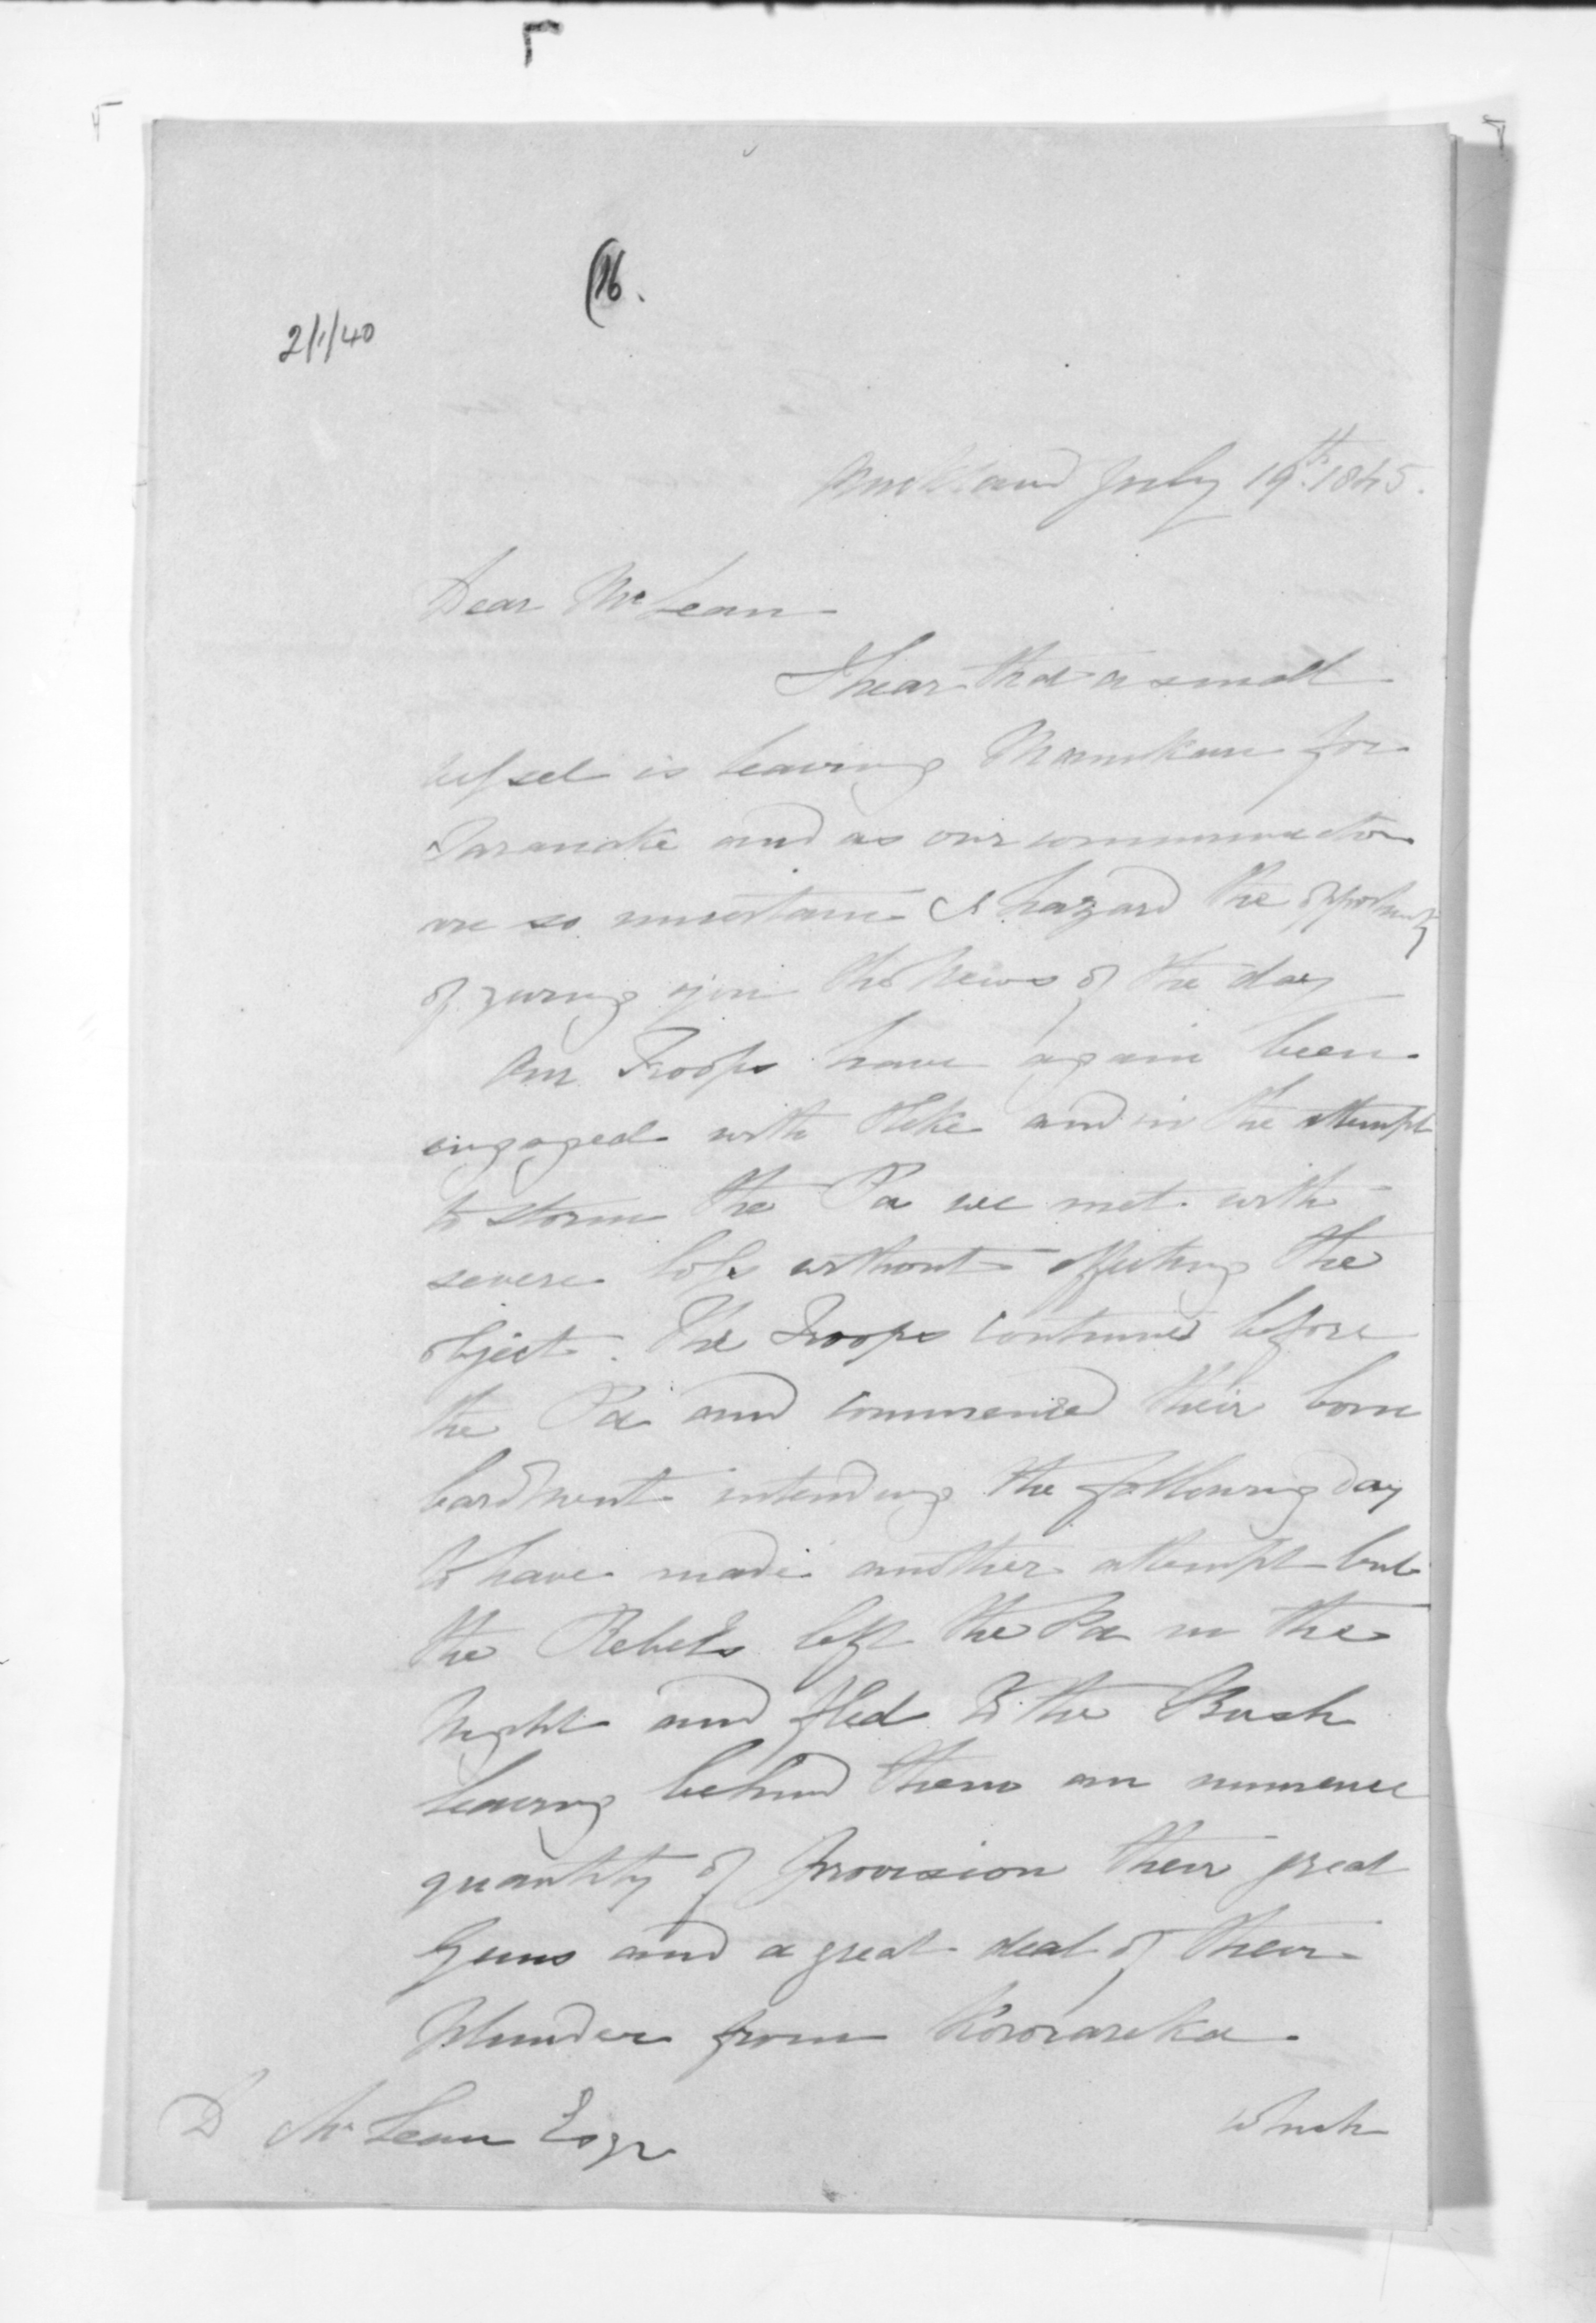 (16.
2/1/40
Auckland July 19th. 1845.
Dear McLean
I hear that a small
vessel is leaving Manukau for
Taranake and as our communication
are so uncertain I hazard the opportunity
of giving you the News of the day
Our Troops have again been
engaged with Heke and in the attempt
to storm the Pa we met with
severe loss without effecting the
object. The Troops continued before
the Pa and commenced their bom
bardment intending the following day
to have made another attempt but
the Rebels left the Pa in the
Night and fled to the Bush
leaving behind them an immense
quantity of Provision their great
Guns and a great deal of their
Plunder from Kororareka.
which
D McLean Esqr